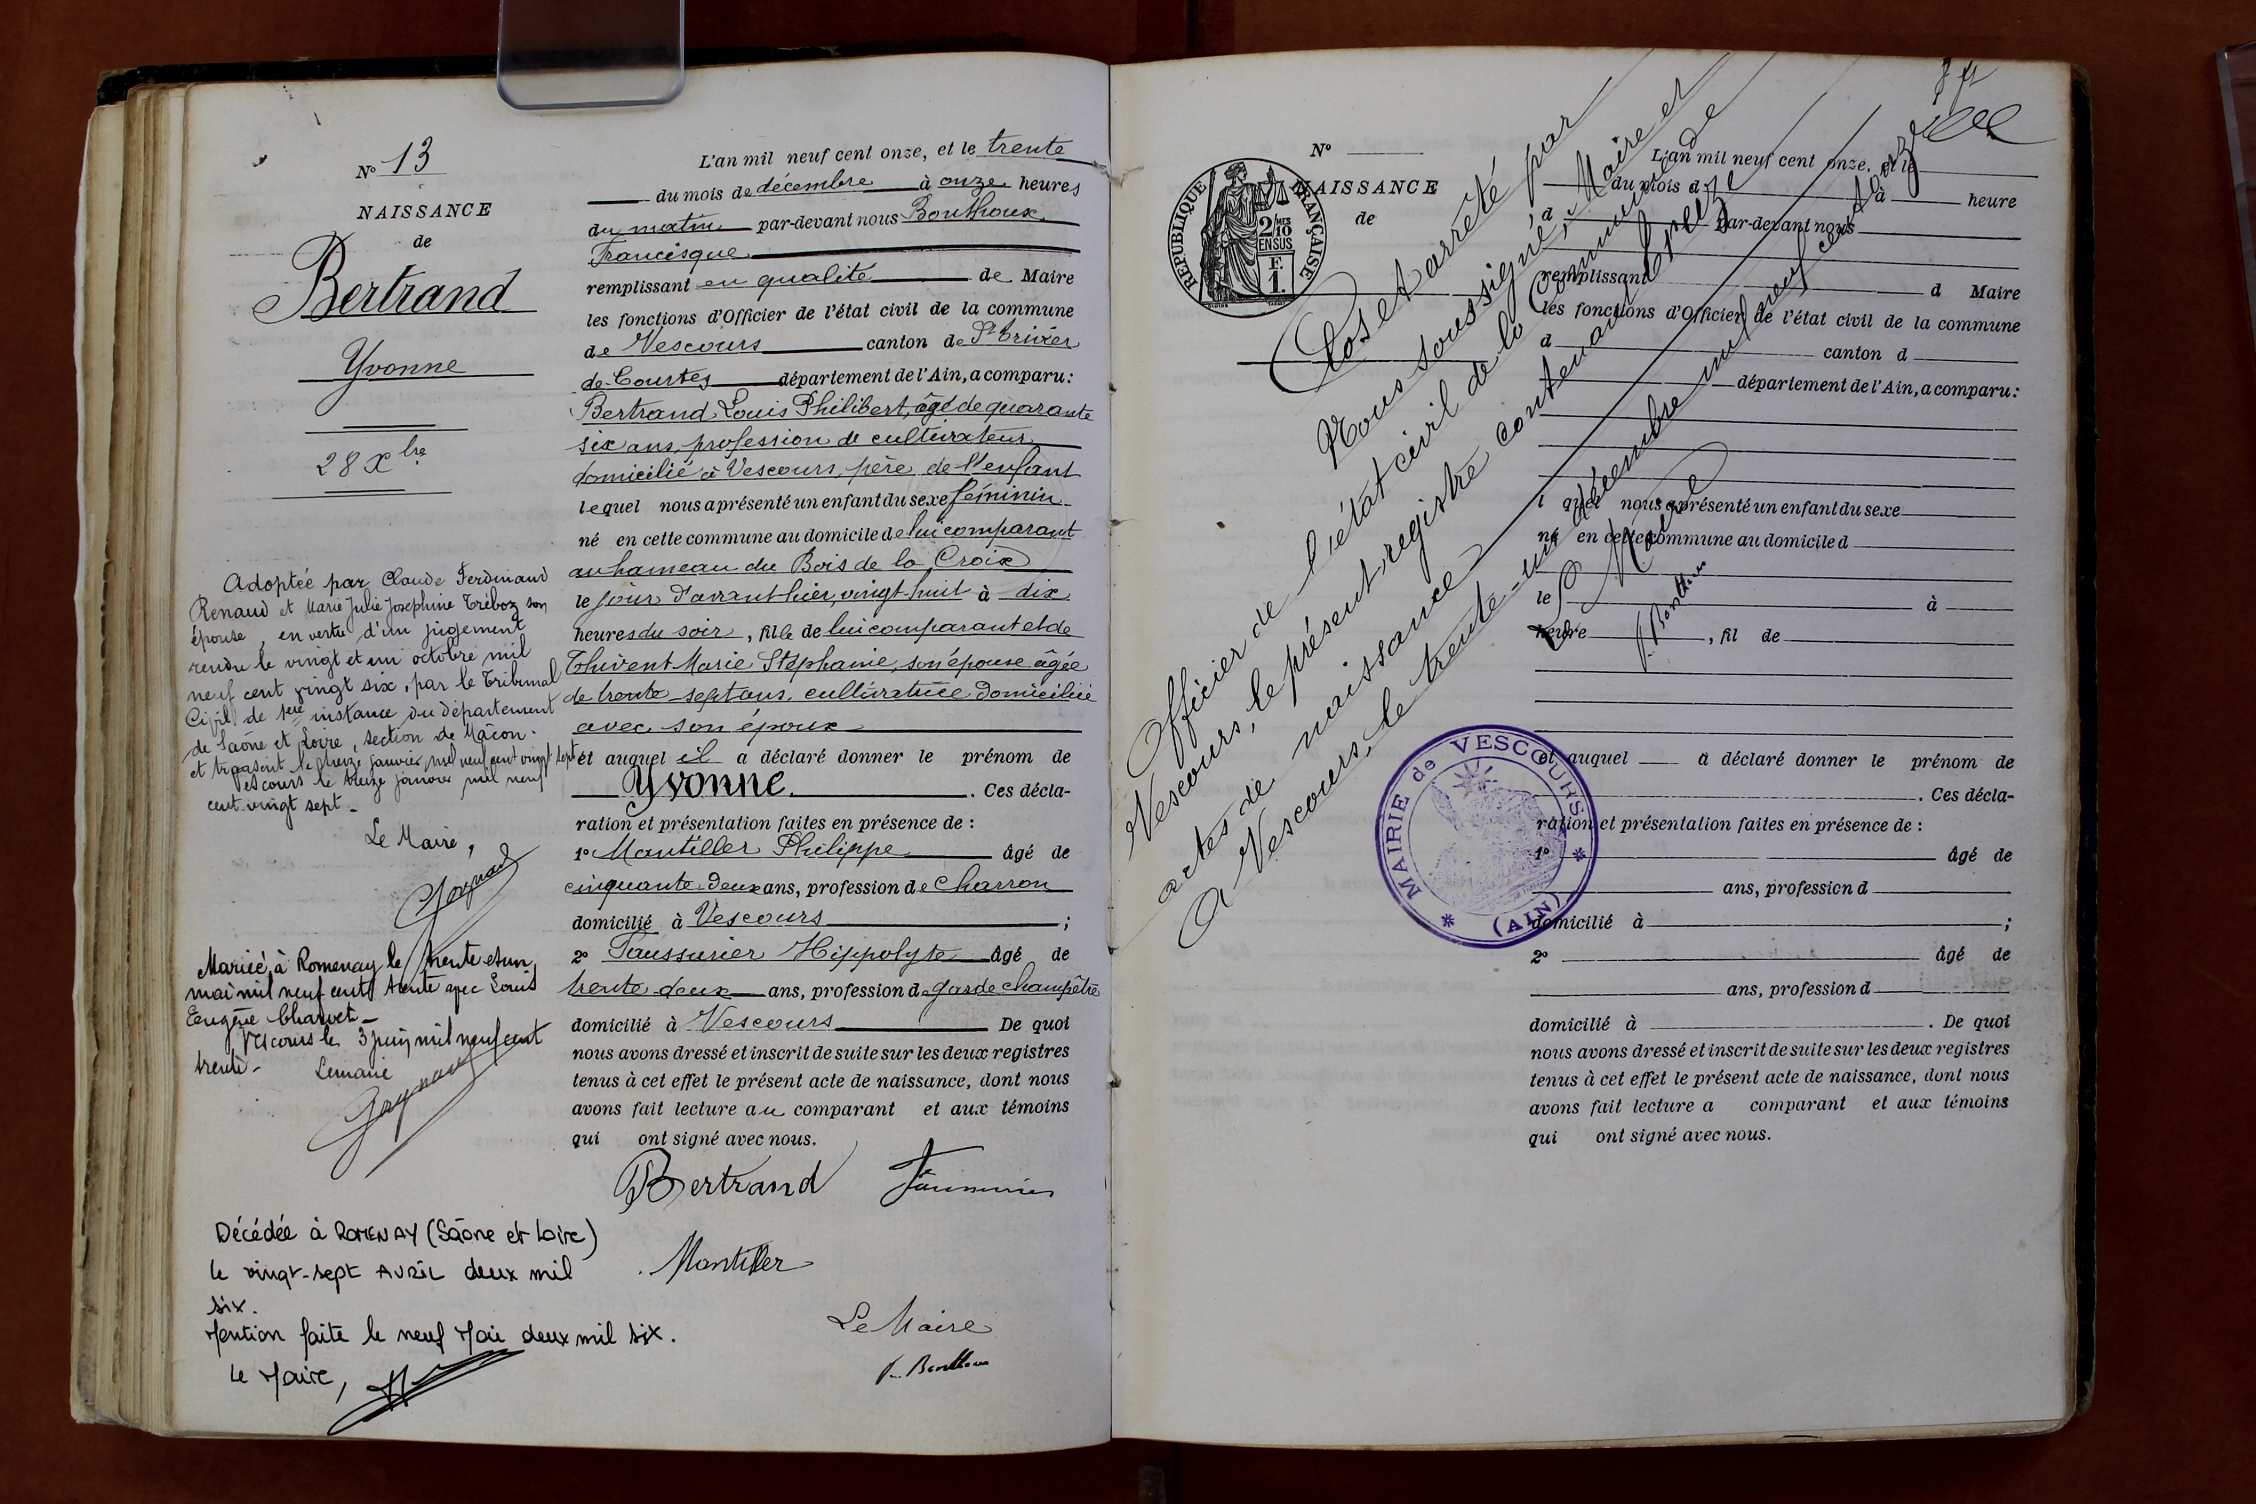 N° 13
NAISSANCE
de
Bertrand
Yvonne
28 Xbre
Adoptée par Claude Ferdinand
Renaud et Marie Julie Josephine Tréboz son
épouse, en vertu d'un jugement
rendu le vingt et un octobre mil
neuf cent vingt six, par le Tribunal
Civil de 1ere instance du département
de Saône et Loire, section de Mâcon.
et transcrit le treize janvier mil neuf cent vingt sept
Vescours le treize janvier mil neuf
cent vingt sept -
Le Maire,
Mariée à Romenay le trente et un
mai mil neuf cent trente avec Louis
Eugène Charvet -
Vescours le 3 juin mil neuf cent
trente - Le maire
Décédée à ROMENAY (Saône et Loire)
le vingt-sept AVRIL deux mil
six.
Mention faite le neuf Mai deux mil six.
Le Maire,
L'an mil neuf cent onze, et le trente
du mois de décembre à onze heures
du matin par-devant nous Bouthoux
Francisque
remplissant en qualité de Maire
les fonctions d'Officier de l'état civil de la commune
de Vescours canton de St Trivier
de-Courtes département de l'Ain, a comparu:
Bertrand Louis Philibert, âgé de quarante
six ans, profession de cultivateur
domicilié à Vescours, père de l'enfant
lequel nous a présenté un enfant du sexe féminin
né en cette commune au domicile de lui comparant
au hameau du Bois de la Croix
le jour d'avant hier, vingt-huit à dix
heures du soir, fille de lui comparant et de
Thivent Marie Stéphanie, son épouse âgée
de trente sept ans, cultivatrice domiciliée
avec son époux
et auquel il a déclaré donner le prénom de
Yvonne. Ces décla-
ration et présentation faites en présence de :
1° Mantiller Philippe âgé de
cinquante-deux ans, profession de charron
domicilié à Vescours ;
2° Faussurier Hippolyte âgé de
trente deux ans, profession de garde champêtre
domicilié à Vescours De quoi
nous avons dressé et inscrit de suite sur les deux registres
tenus à cet effet le présent acte de naissance, dont nous
avons fait lecture au comparant et aux témoins
qui ont signé avec nous.
Bertrand
Mantiller
Le Maire
F. Bouthoux
N°
NAISSANCE
de
RÉPUBLIQUE FRANÇAISE
2/10 MES
EN SUS
F.
1.
Clos et arrêté par
Nous soussigné, Maire et
Officier de l'état civil de la Commune de
Vescours, le présent registre contenant treize
actes de naissance
A Vescours, le trente-un décembre mil neuf cent onze
Le Maire
F. Bouthoux
L'an mil neuf cent onze, et le
du mois d à heure
d par-devant nous
remplissant d Maire
les fonctions d'Officier de l'état civil de la commune
d canton d
département de l'Ain, a comparu:
l quel nous a présenté un enfant du sexe
né en cette commune au domicile d
le à
heure , fil de
et auquel a déclaré donner le prénom de
. Ces décla-
ration et présentation faites en présence de :
1° âgé de
ans, profession d
domicilié à ;
2° âgé de
ans, profession d
domicilié à . De quoi
nous avons dressé et inscrit de suite sur les deux registres
tenus à cet effet le présent acte de naissance, dont nous
avons fait lecture a comparant et aux témoins
qui ont signé avec nous.
MAIRIE de VESCOURS
(AIN)